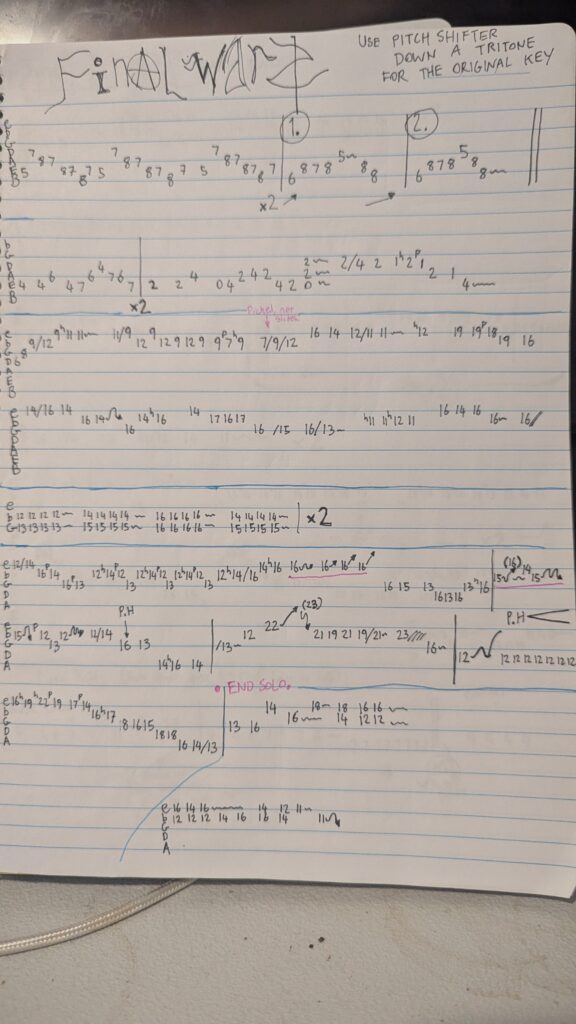 Final Warz
USE PITCH SHIFTER
DOWN A TRITONE
FOR THE ORIGINAL KEY
1.
2.
5 7 87 87 8 7 5 7 87 87 8 7 5 7 87 87 8 7
6 8 7 8 5 8 8
6 8 7 8 5 8 8
x2
4 4 6 4 7 6 4 7 6 7 2 2 4 0 4 2 4 2 4 2 0
2/4 2 1h2p1 2 1 4
x2
Picked, not
6 8 9/12 9h11 11 11/9 12 9 12 9 12 9 9p7h9 7/9/12 16 14 12/11 11 h12 19 19p18 19 16
14/16 14 16 14 16 14h16 14 17 16 17 16 /15 16/13 h11 11h12 11 16 14 16 16 16
e
b 12 12 12 12 14 14 14 14 16 16 16 16 14 14 14 14
G 13 13 13 13 15 15 15 15 16 16 16 16 15 15 15 15
x2
e 12/14 16p14 16p13 12h14p12 13 12h14p12 13 12h14p12 13 12h14/16 14h16 16 16 16 16 16 15 13 16 13 16 13h16 15 (16) 14 15
P.H
(23)
P.H
15 p 12 13 12 12/14 16 13 14h16 14 /13 12 22 21 19 21 19/21 23 16 12 12 12 12 12 12 12 12
END SOLO.
e 16h19h22p19 17p14 16h17 18 16 15 18 18 16 14/13 13 16 14 16 18 18 16 16
14 12 12
e 16 14 16 14 12 11
b 12 12 12 14 16 16 14 11
G
D
A